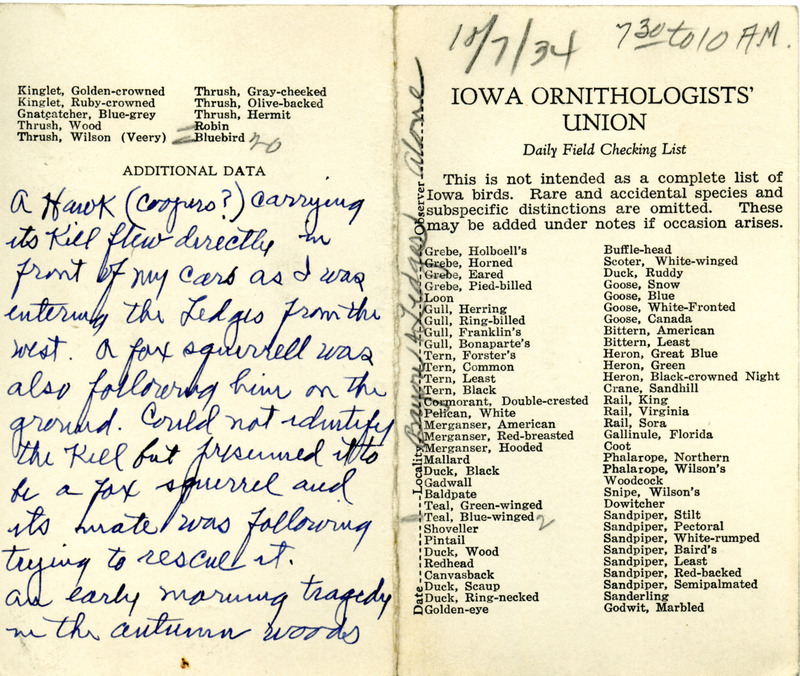 Kinglet, Golden-crowned
Kinglet, Ruby-crowned
Gnatcatcher, Blue-grey
Thrush, Wood
Thrush, Wilson (Veery)
Thrush, Gray-cheeked
Thrush, Olive-backed
Thrush, Hermit
Robin
Bluebird 20
ADDITIONAL DATA
A Hawk (Coopers?) carrying
its Kill flew directly in
front of my cars as I was
entering the Ledges from the
west. A fox squirrell was
also following him on the
ground. Could not identify
the Kill but presumed it to
be a fox squirrel and
its mate was following
trying to rescue it.
an early morning tragedy
in the autumn woods
10/7/34 7 30 to 10 A.M.
IOWA ORNITHOLOGISTS'
UNION
Daily Field Checking List
This is not intended as a complete list of
Iowa birds. Rare and accidental species and
subspecific distinctions are omitted. These
may be added under notes if occasion arises.
Date Locality Ledges Observer alone
Grebe, Holboell's
Grebe, Horned
Grebe, Eared
Grebe, Pied-billed
Loon
Gull, Herring
Gull, Ring-billed
Gull, Franklin's
Gull, Bonaparte's
Tern, Forster's
Tern, Common
Tern, Least
Tern, Black
Cormorant, Double-crested
Pelican, White
Merganser, American
Merganser, Red-breasted
Merganser, Hooded
Mallard
Duck, Black
Gadwall
Baldpate
Teal, Green-winged
Teal, Blue-winged 2
Shoveller
Pintail
Duck, Wood
Redhead
Canvasback
Duck, Scaup
Duck, Ring-necked
Golden-eye
Buffle-head
Scoter, White-winged
Duck, Ruddy
Goose, Snow
Goose, Blue
Goose, White-Fronted
Goose, Canada
Bittern, American
Bittern, Least
Heron, Great Blue
Heron, Green
Heron, Black-crowned Night
Crane, Sandhill
Rail, King
Rail, Virginia
Rail, Sora
Gallinule, Florida
Coot
Phalarope, Northern
Phalarope, Wilson's
Woodcock
Snipe, Wilson's
Dowitcher
Sandpiper, Stilt
Sandpiper, Pectoral
Sandpiper, White-rumped
Sandpiper, Baird's
Sandpiper, Least
Sandpiper, Red-backed
Sandpiper, Semipalmated
Sanderling
Godwit, Marbled